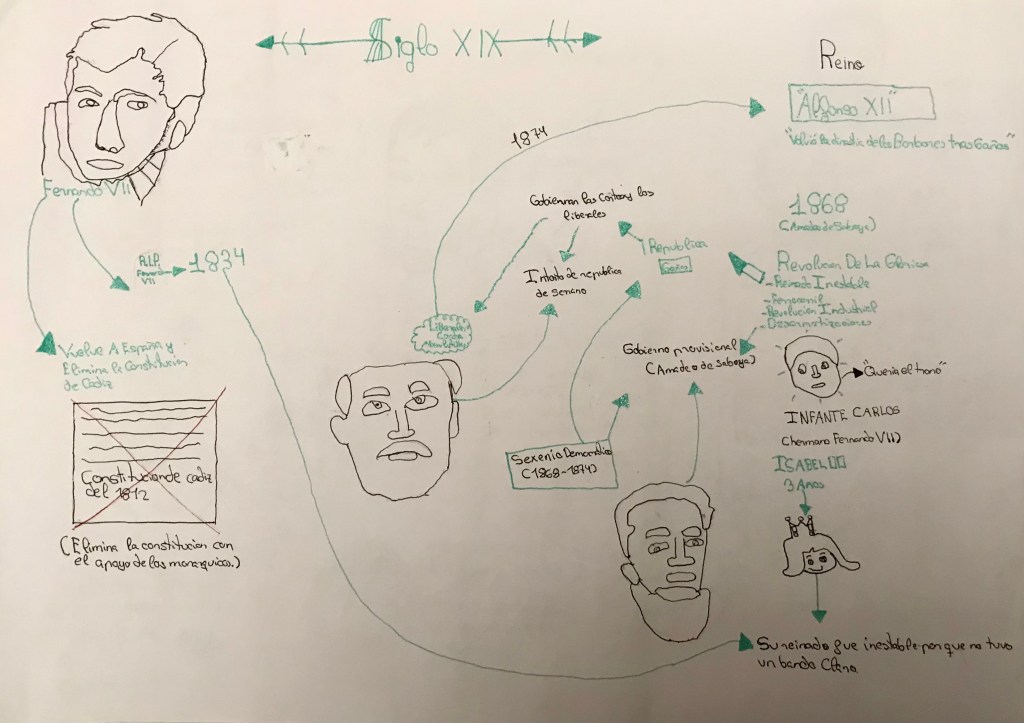 Siglo XIX
Reino
"Alfonso XII"
"Volvió la dinastia de los Borbones tras 6 años"
1874
Fernando VII
R.I.P.
Fernando
VII
1834
Vuelve A España y
Elimina la Constitucion
de Cadiz
Constitucion de cadiz
del 1812
(Elimina la constitucion con
el apoyo de los monarquicos.)
Gobiernan las Cortes los
liberales
Intento de republica
de serrano
Republica
Liberales
Contra
Sexenio Democratico
(1868-1874)
Gobierno provisional
(Amadeo de Saboya)
1868
(Amadeo de Saboya)
Revolucion De La Gloriosa
- Reinado Inestable
- Ferrocarril
- Revolucion Industrial
- Desarmotizaciones
"Queria el trono"
INFANTE CARLOS
(hermano Fernando VII)
ISABEL II
3 Años
Su reinado fue inestable por que no tuvo
un bando Claro